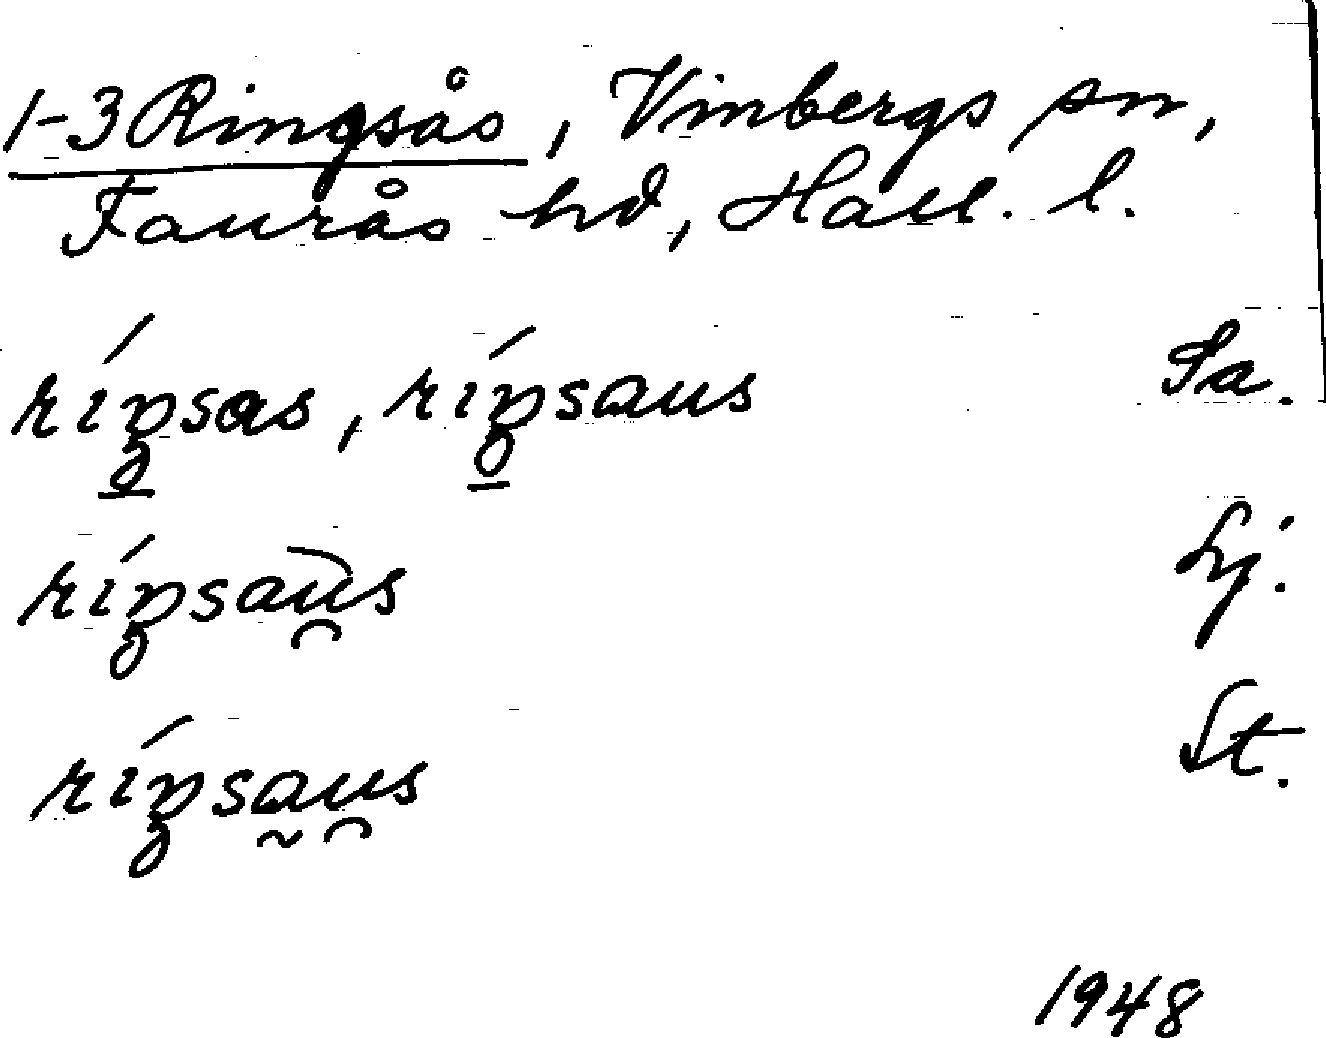 1-3 Ringsås, Vinbergs sn,
Faurås hd, Hall. l.
ríŋsas, ríŋsaus Sa.
ríŋsau̯s Lj.
ríŋsa̰u̯s St.
1948